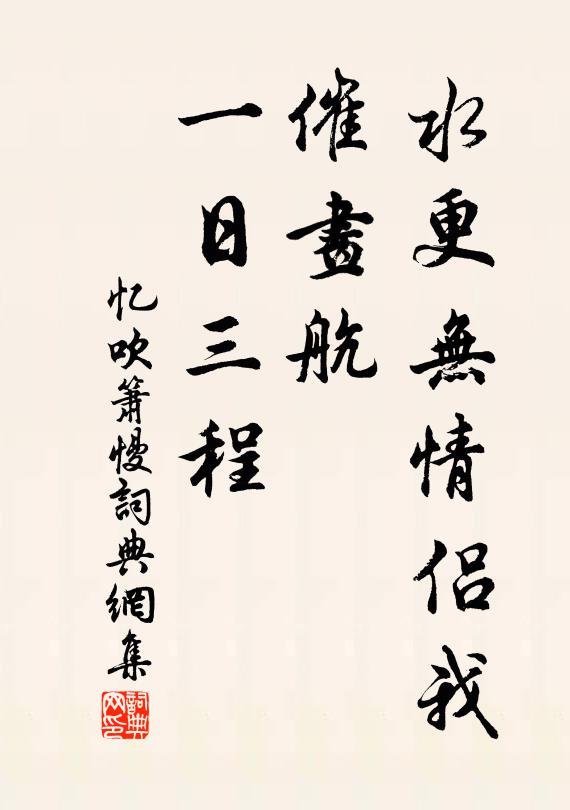 水更無情侶我
催畫航
一日三程
忆吹簫慢詞典網集
詞典
网印